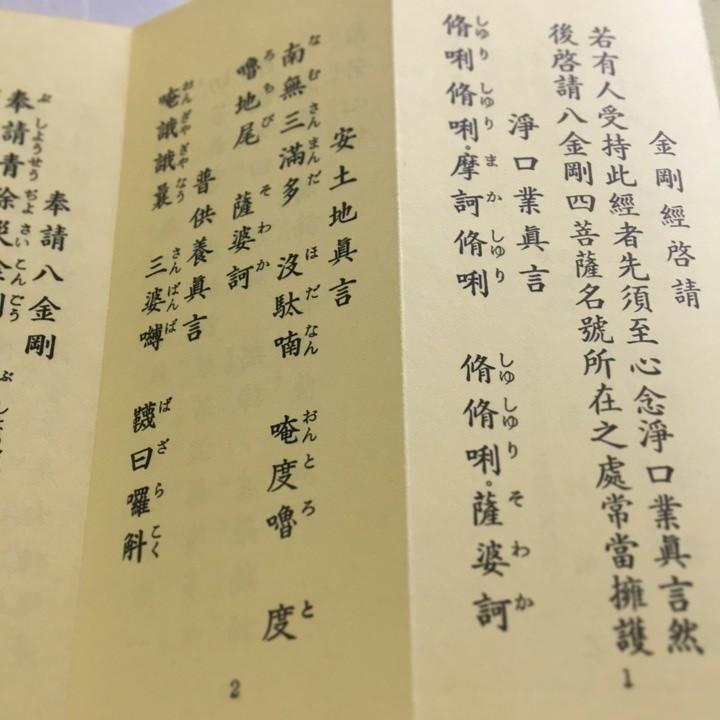 金剛經啓請
若有人受持此經者先須至心念淨口業眞言然
後啓請八金剛四菩薩名號所在之處常當擁護
淨口業眞言
しゆり しゆり まか しゆり しゆ しゆり そわか
脩唎 脩唎。摩訶 脩唎 脩 脩唎。薩婆訶
1
安土地眞言
なむ さんまんだ ほだなん おん とろ と
南無三滿多 沒駄喃 唵度嚕 度
ろ ちび そわか
嚕地尾 薩婆訶
普供養眞言
おん ぎやぎやなう さんばんば ばざらこく
唵誐誐曩 三婆嚩 韈日囉斛
2
奉請八金剛
ぶしようせうぢよさいこんごう
奉請青除災金